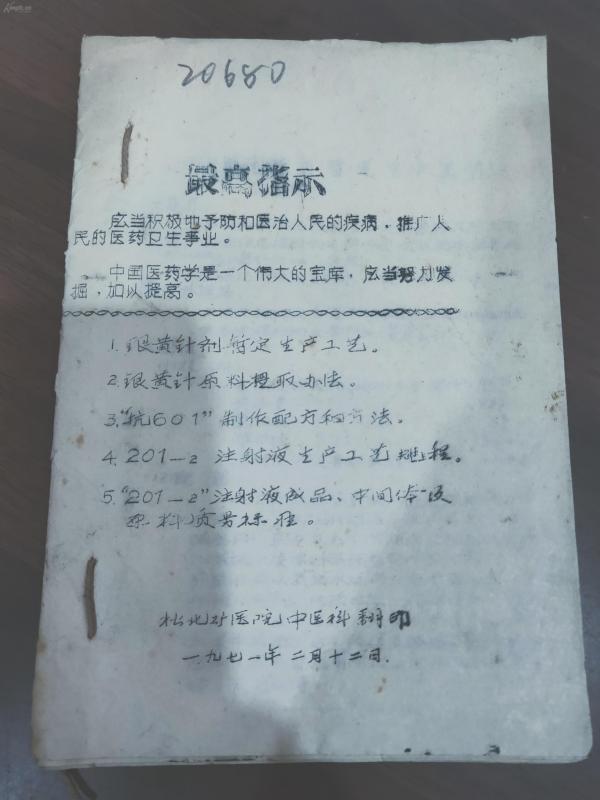 20680
最高指示
应当积极地予防和医治人民的疾病，推广人
民的医药卫生事业。
中国医药学是一个伟大的宝库，应当努力发
掘，加以提高。
1. 银黄针剂暂定生产工艺。
2. 银黄针原料提取办法。
3. "抗601"制作配方和方法。
4. 201-2 注射液生产工艺规程。
5. "201-2"注射液成品、中间体及
原料质量标准。
松北矿医院中医科翻印
一九七一年二月十二日.